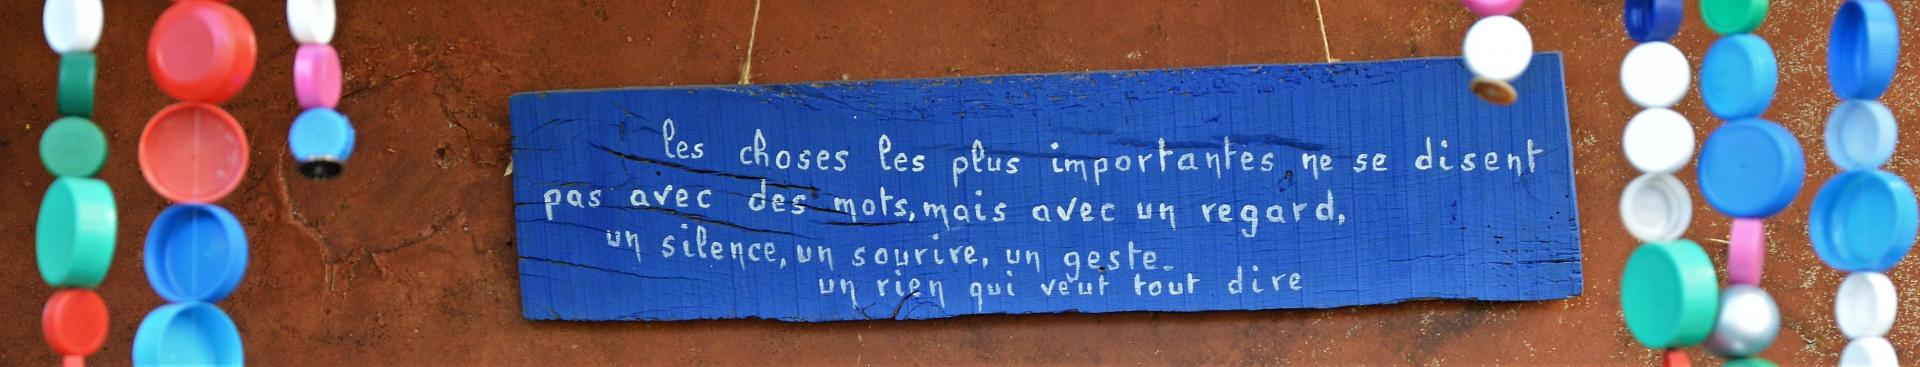 les choses les plus importantes ne se disent
pas avec des mots, mais avec un regard,
un silence, un sourire, un geste_
un rien qui veut tout dire